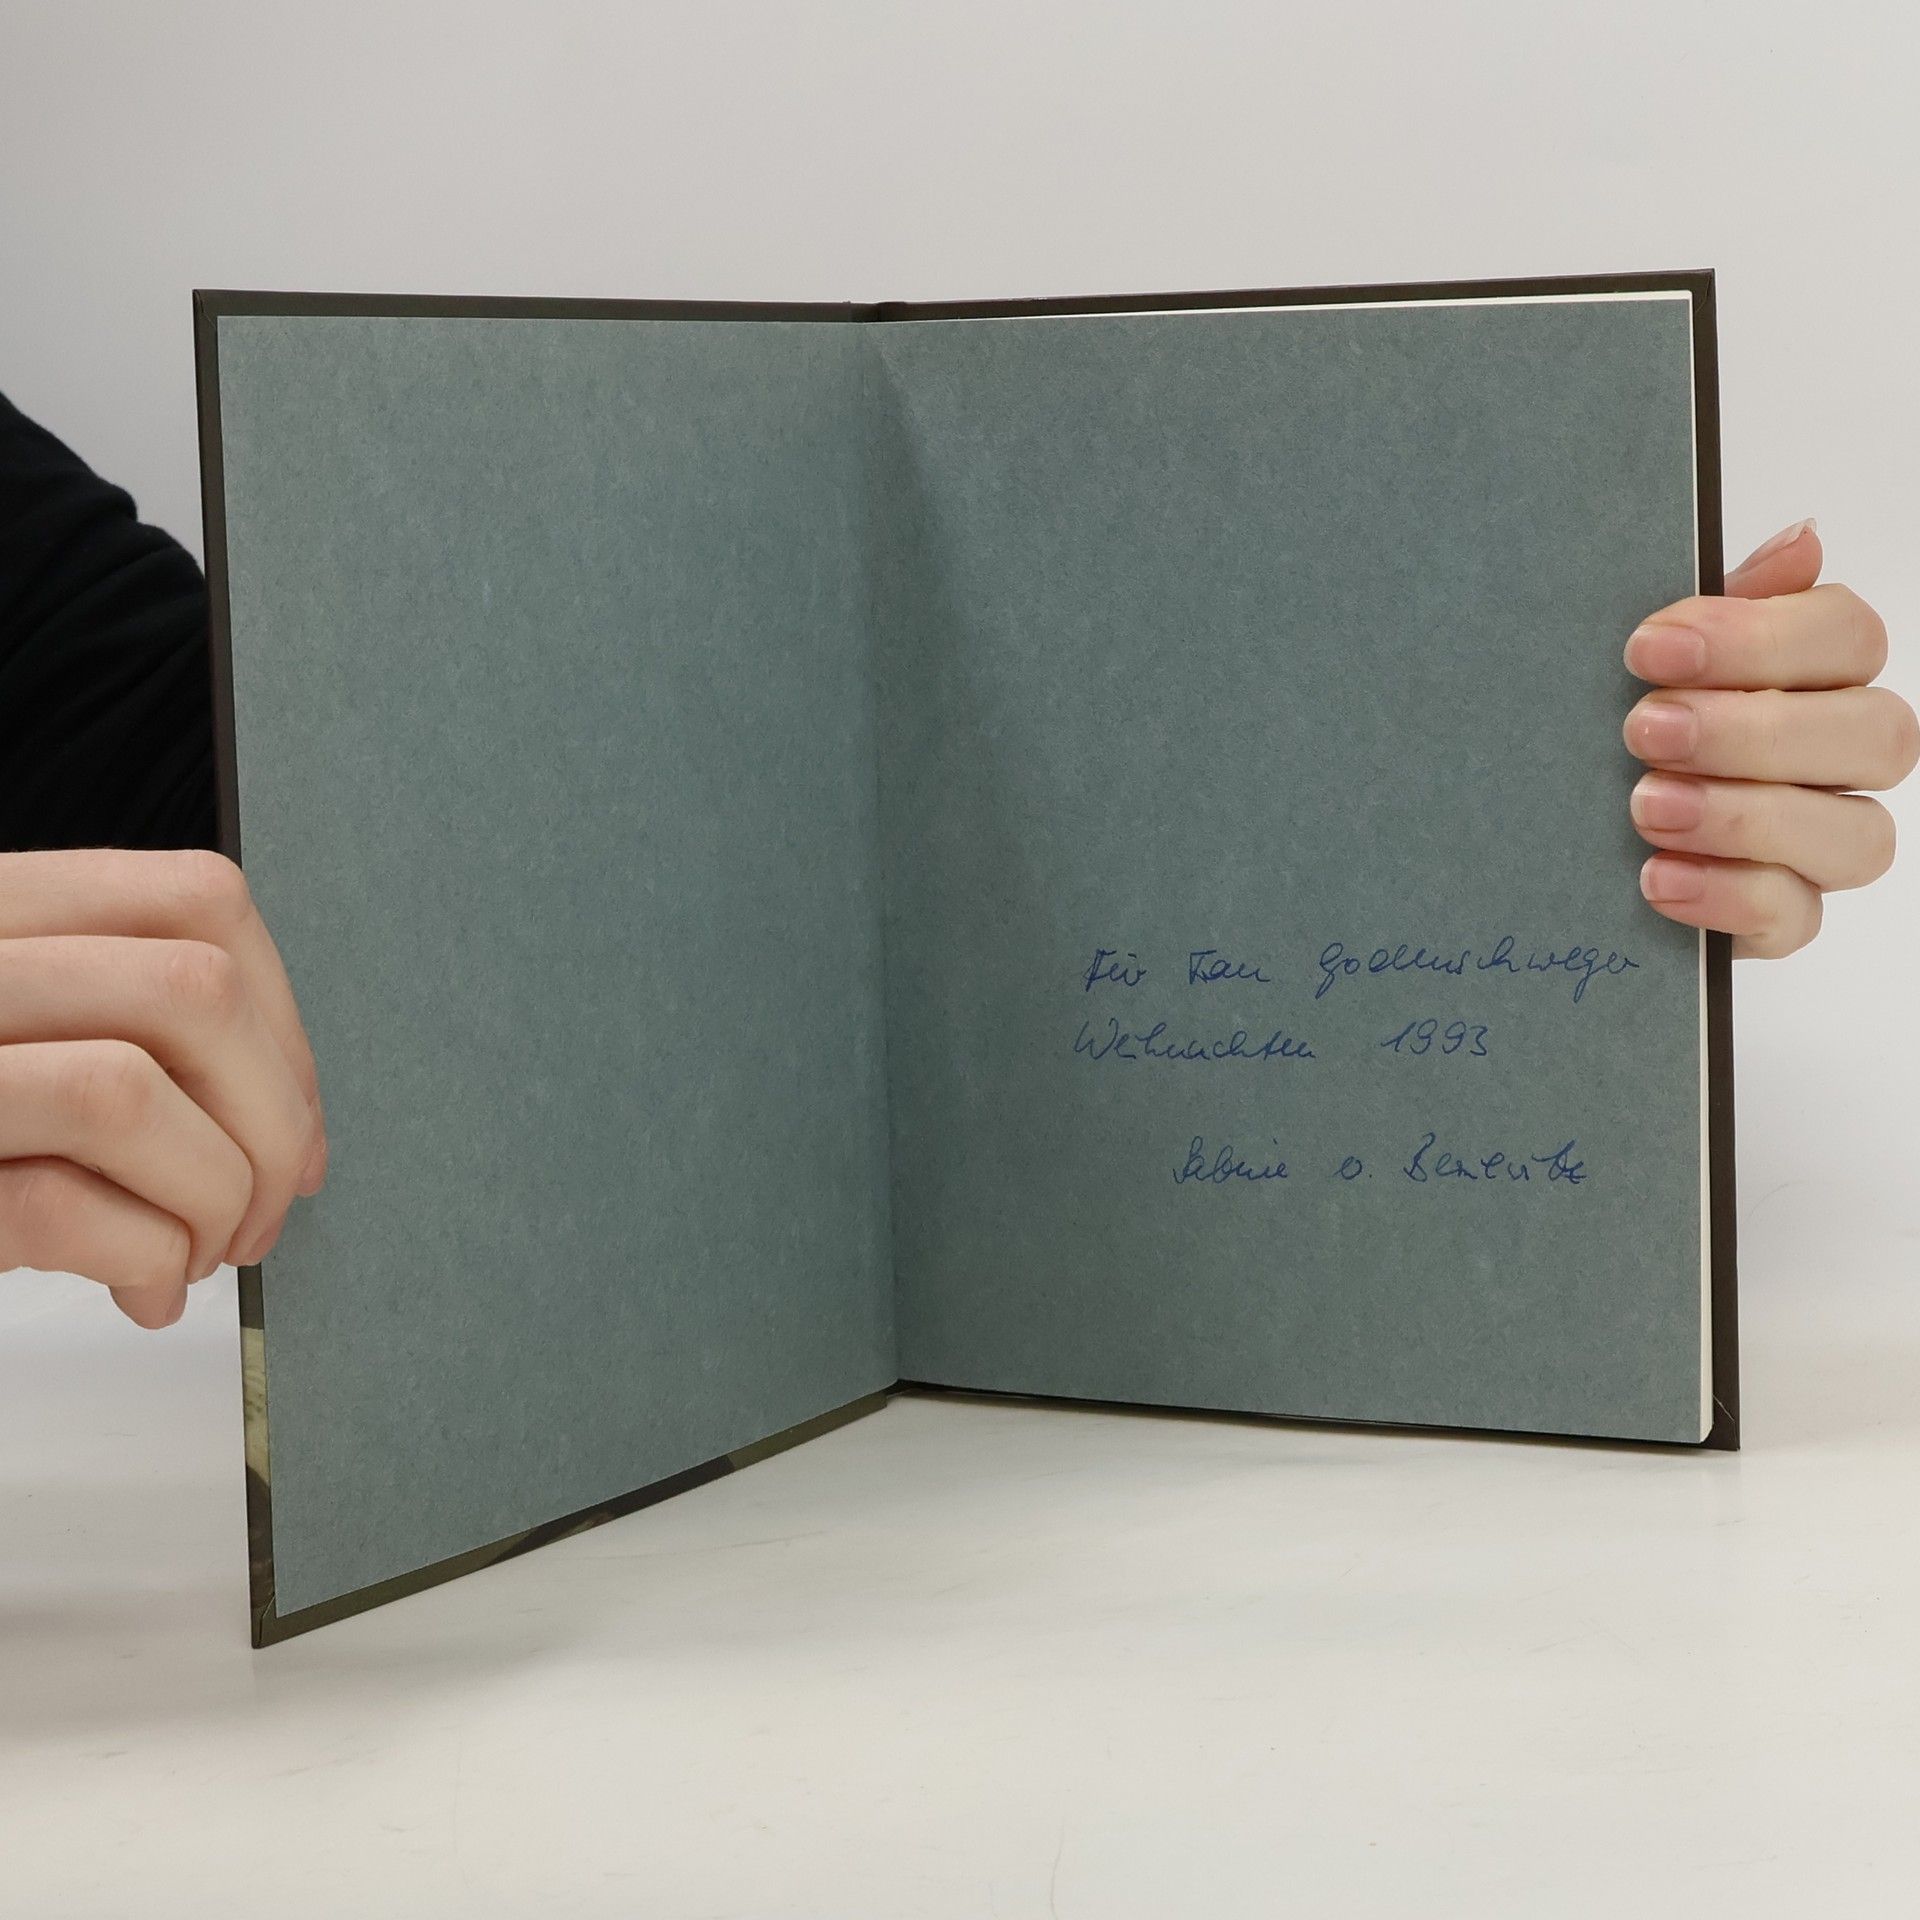 Für Frau Godenschweger
Weihnachten 1993
Sabine v. Bemewitz